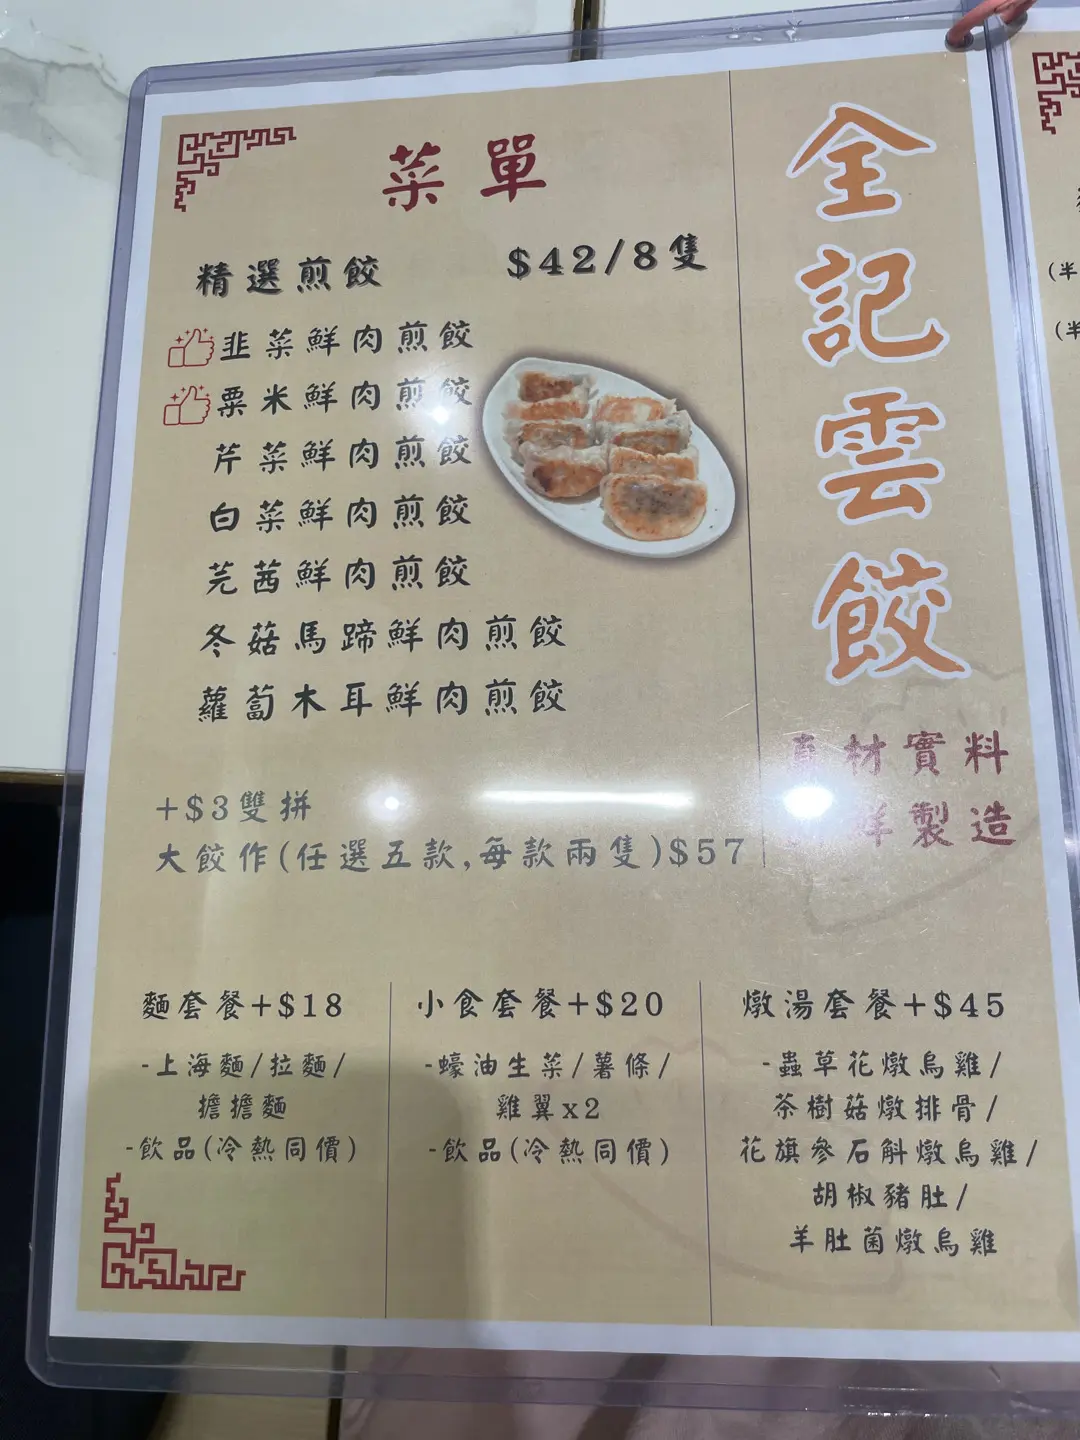 菜單
精選煎餃 $42/8隻
韭菜鮮肉煎餃
粟米鮮肉煎餃
芹菜鮮肉煎餃
白菜鮮肉煎餃
芫茜鮮肉煎餃
冬菇馬蹄鮮肉煎餃
蘿蔔木耳鮮肉煎餃
+$3雙拼
大餃作(任選五款,每款兩隻)$57
全記雲餃
真材實料
鮮製造
麵套餐+$18
-上海麵/拉麵/
擔擔麵
-飲品(冷熱同價)
小食套餐+$20
-蠔油生菜/薯條/
雞翼x2
-飲品(冷熱同價)
燉湯套餐+$45
-蟲草花燉烏雞/
茶樹菇燉排骨/
花旗參石斛燉烏雞/
胡椒豬肚/
羊肚菌燉烏雞
(半
(半